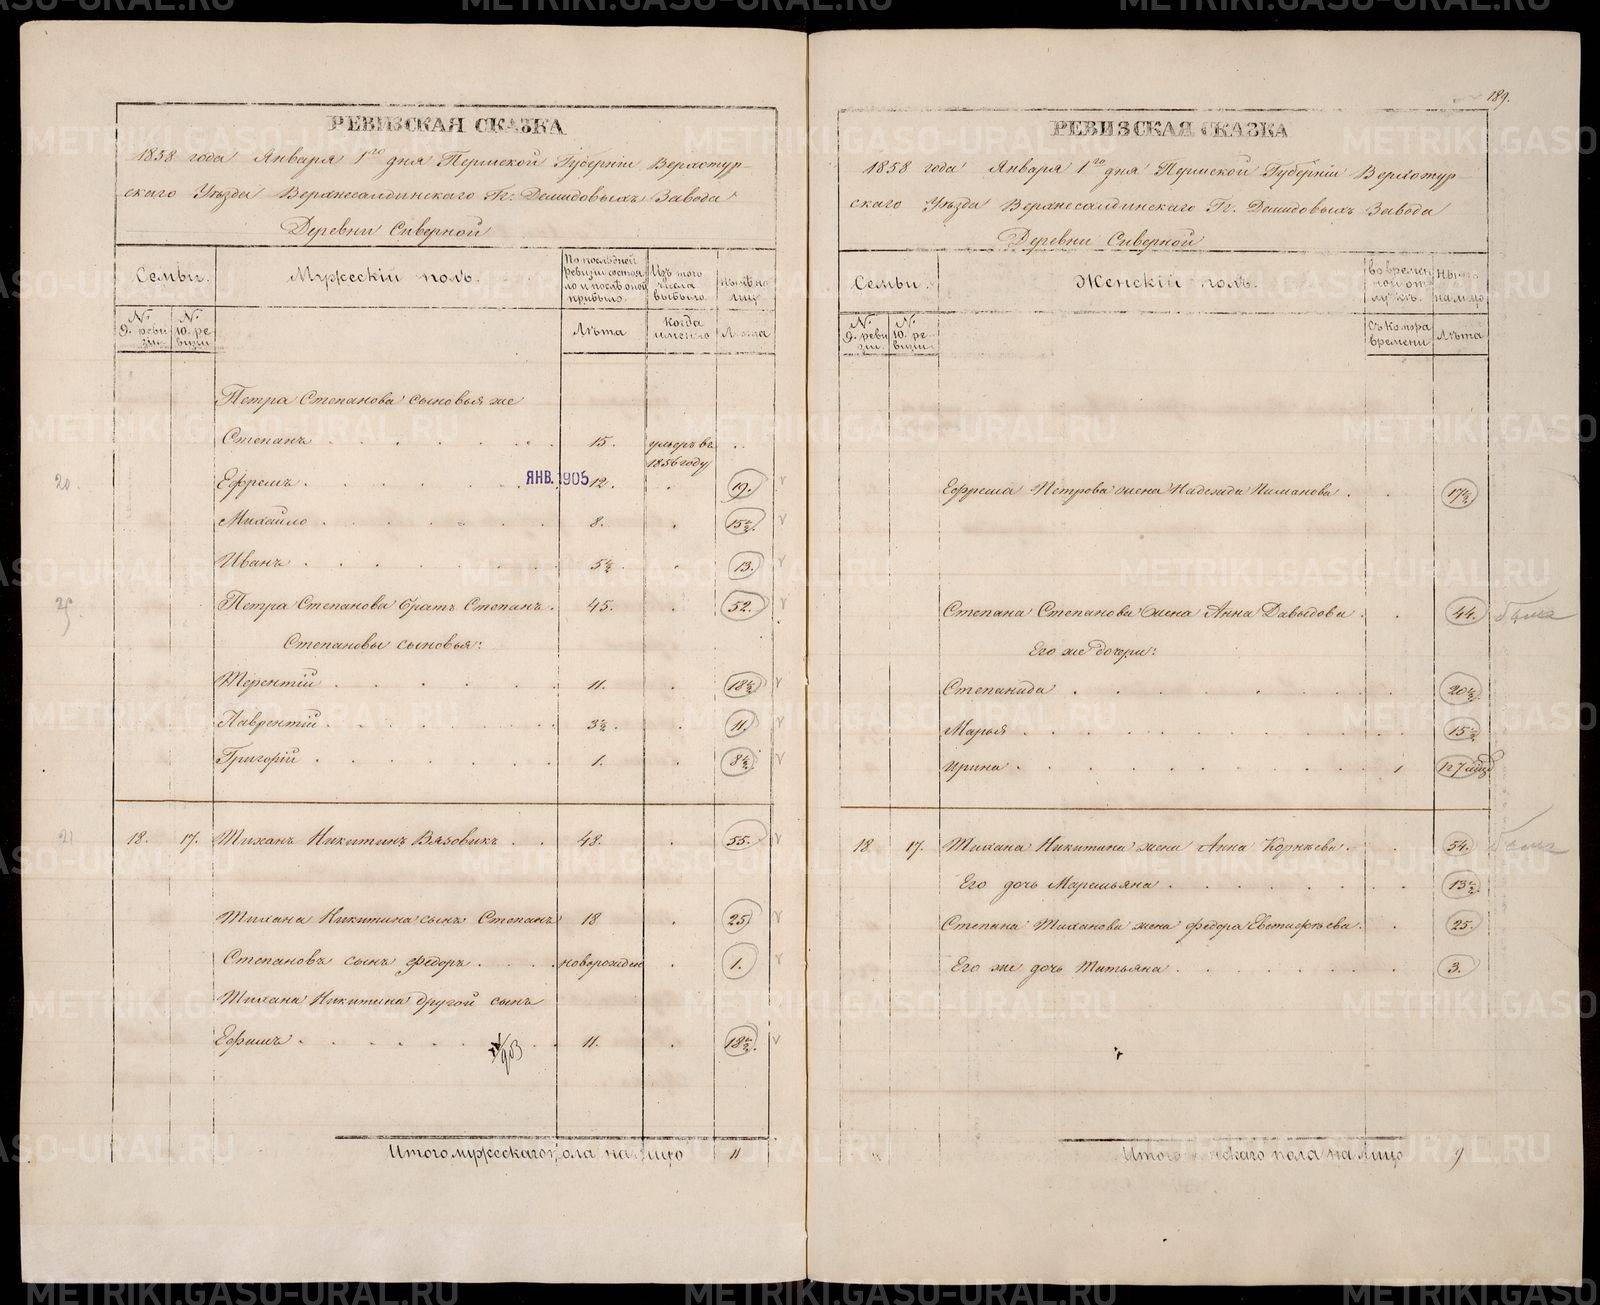 РЕВИЗСКАЯ СКАЗКА
1858 года Января 1го дня Пермской Губерніи Верхотур-
скаго Уѣзда Верхнесалдинскаго Гг. Демидовыхъ Завода
Деревни Сиверной
Семьи.
Мужескій полъ.
По послѣдней ревизіи состояло и послѣ оной прибыло.
Изъ того числа выбыло.
Нынѣ на лицо
№. 9. ревизіи.
№. 10. ревизіи.
Лѣта
Когда именно
Лѣта
Петра Степанова сыновья же
Степанъ 15. умеръ въ 1856 году
20. Ефремъ 12. 19.
ЯНВ. 1905
Михайло 8. 15½.
Иванъ 5½. 13.
Петра Степанова братъ Степанъ. 45. 52.
Степановы сыновья:
Терентій 11. 18½
Лаврентій 3½. 11.
Григорій 1. 8½
21 18. 17. Тиханъ Никитинъ Вязовикъ 48. 55.
Тихана Никитина сынъ Степанъ 18 25.
Степановъ сынъ Федоръ новорожден 1.
Тихана Никитина другой сынъ
Ефимъ 11. 18½.
Итого мужескаго пола на лицо 11
189.
РЕВИЗСКАЯ СКАЗКА
1858 года Января 1го дня Пермской Губерніи Верхотур-
скаго Уѣзда Верхнесалдинскаго Гг. Демидовыхъ Завода
Деревни Сиверной
Семьи.
Женскій полъ.
Во временной отлучкѣ.
Нынѣ на лицо
№. 9. ревизіи.
№. 10. ревизіи.
Съ котора времени
Лѣта
Ефрема Петрова жена Надежда Климанова. 17½
Степана Степанова жена Анна Давыдова. 44.
Его же дочери:
Степанида 20½
Марья 15½
Ирина 1
18 17. Тихана Никитина жена Анна Корнѣева. 54.
Его дочь Маремьяна 13½
Степана Тиханова жена Федора Евстифѣева. 25.
Его же дочь Татьяна 3.
Итого женскаго пола на лицо 9
METRIKI.GASO-URAL.RU